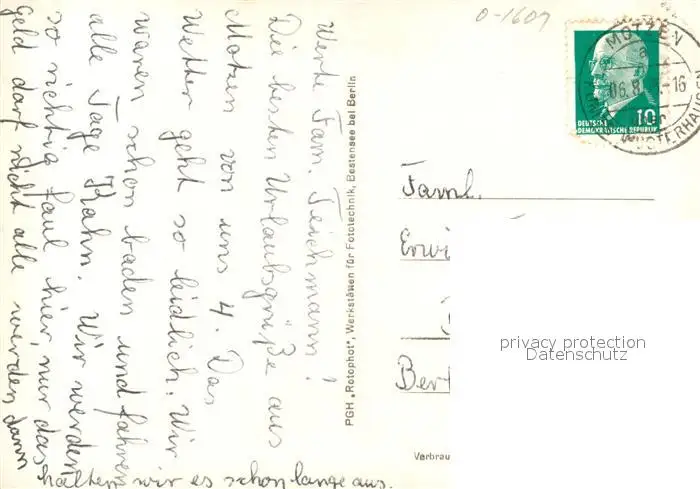 Werte Fam. Teichmann!
Die besten Urlaubsgrüße aus
Motzen von uns 4. Das
Wetter geht so leidlich. Wir
waren schon baden und fahren
alle Tage Kahn. Wir werden
so richtig faul hier, nur das
Geld darf nicht alle werden, dann
halten wir es schon lange aus.
PGH „Rotophot", Werkstätten für Fototechnik, Bestensee bei Berlin
0-1609
MOTZEN
06.8. -16
WUSTERHAUSEN
10
DEUTSCHE
DEMOKRATISCHE REPUBLIK
Faml.
Erwi
Ber
privacy protection
Datenschutz
Verbrau